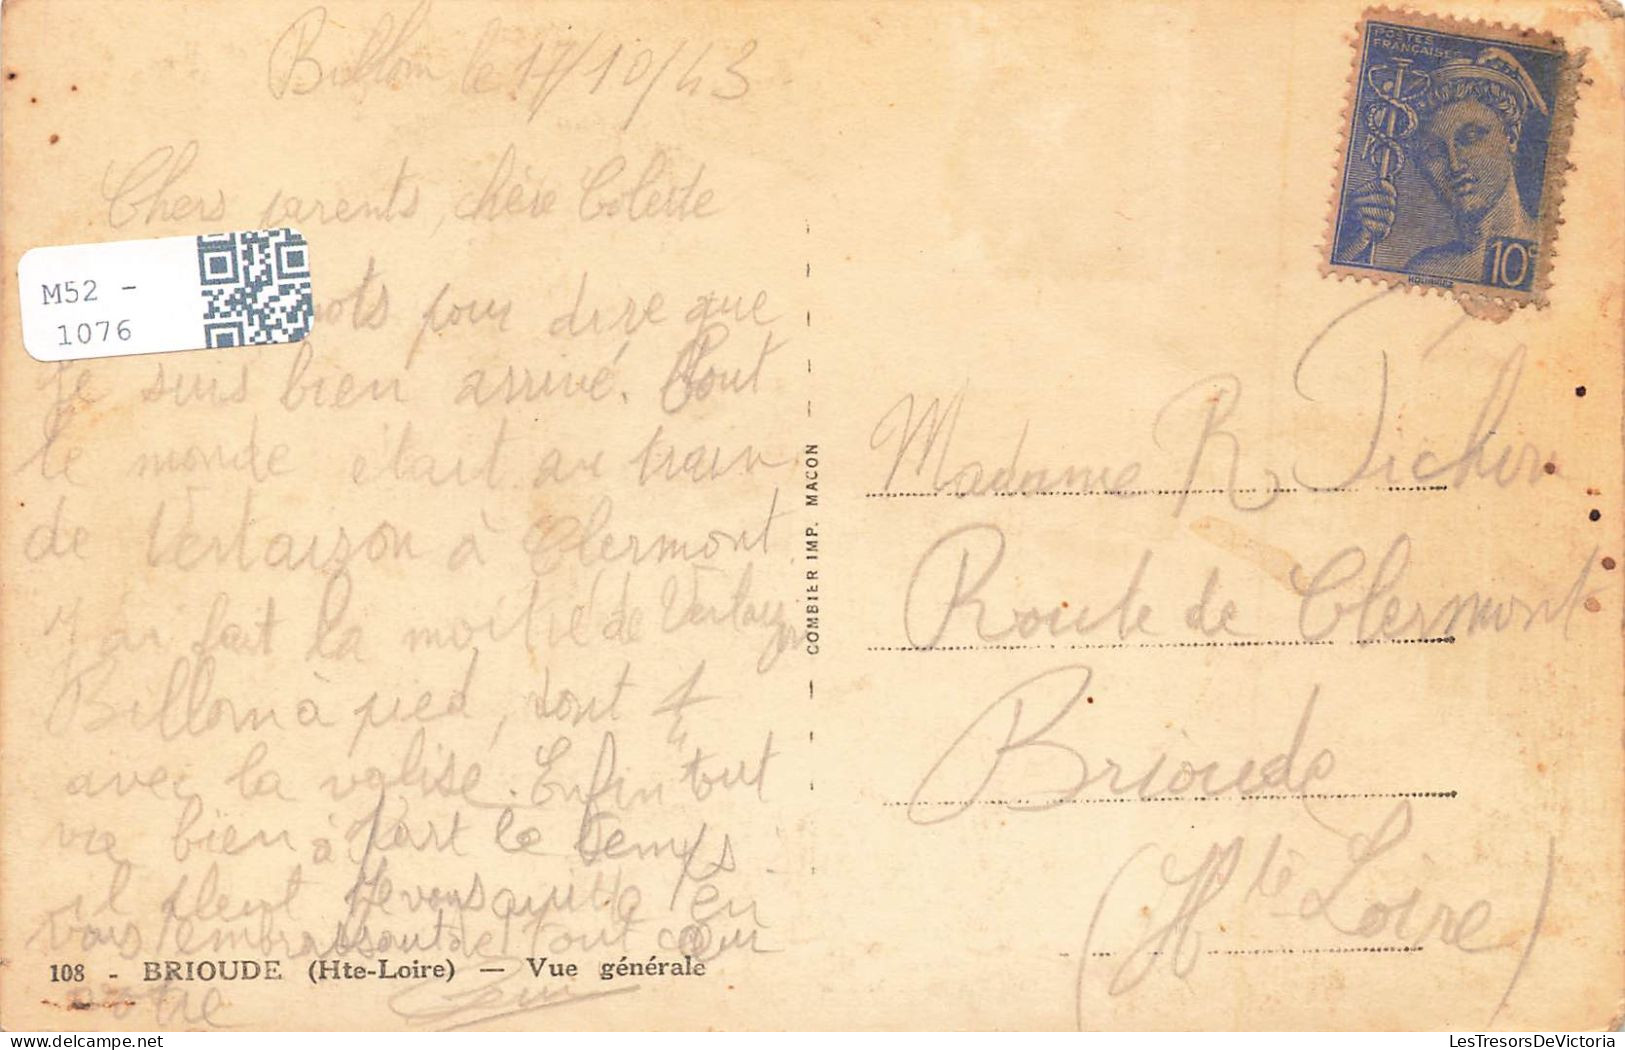 Billom le 17/10/43
Chers parents, chère Colette
mots pour dire que
je suis bien arrivé. Tout
le monde était au train
de Vertaizon à Clermont.
J'ai fait la moitié de Vertaizon
Billom à pied, dont 1/4
avec la valise. Enfin tout
va bien à part le temps
il pleut Je vous quitte en
vous embrassant de tout cœur
votre
108 - BRIOUDE (Hte-Loire) — Vue générale
M52 -
1076
COMBIER IMP. MACON
POSTES
FRANÇAISES
10c
Madame R. Pichon
Route de Clermont
Brioude
(Hte Loire)
LesTresorsDeVictoria